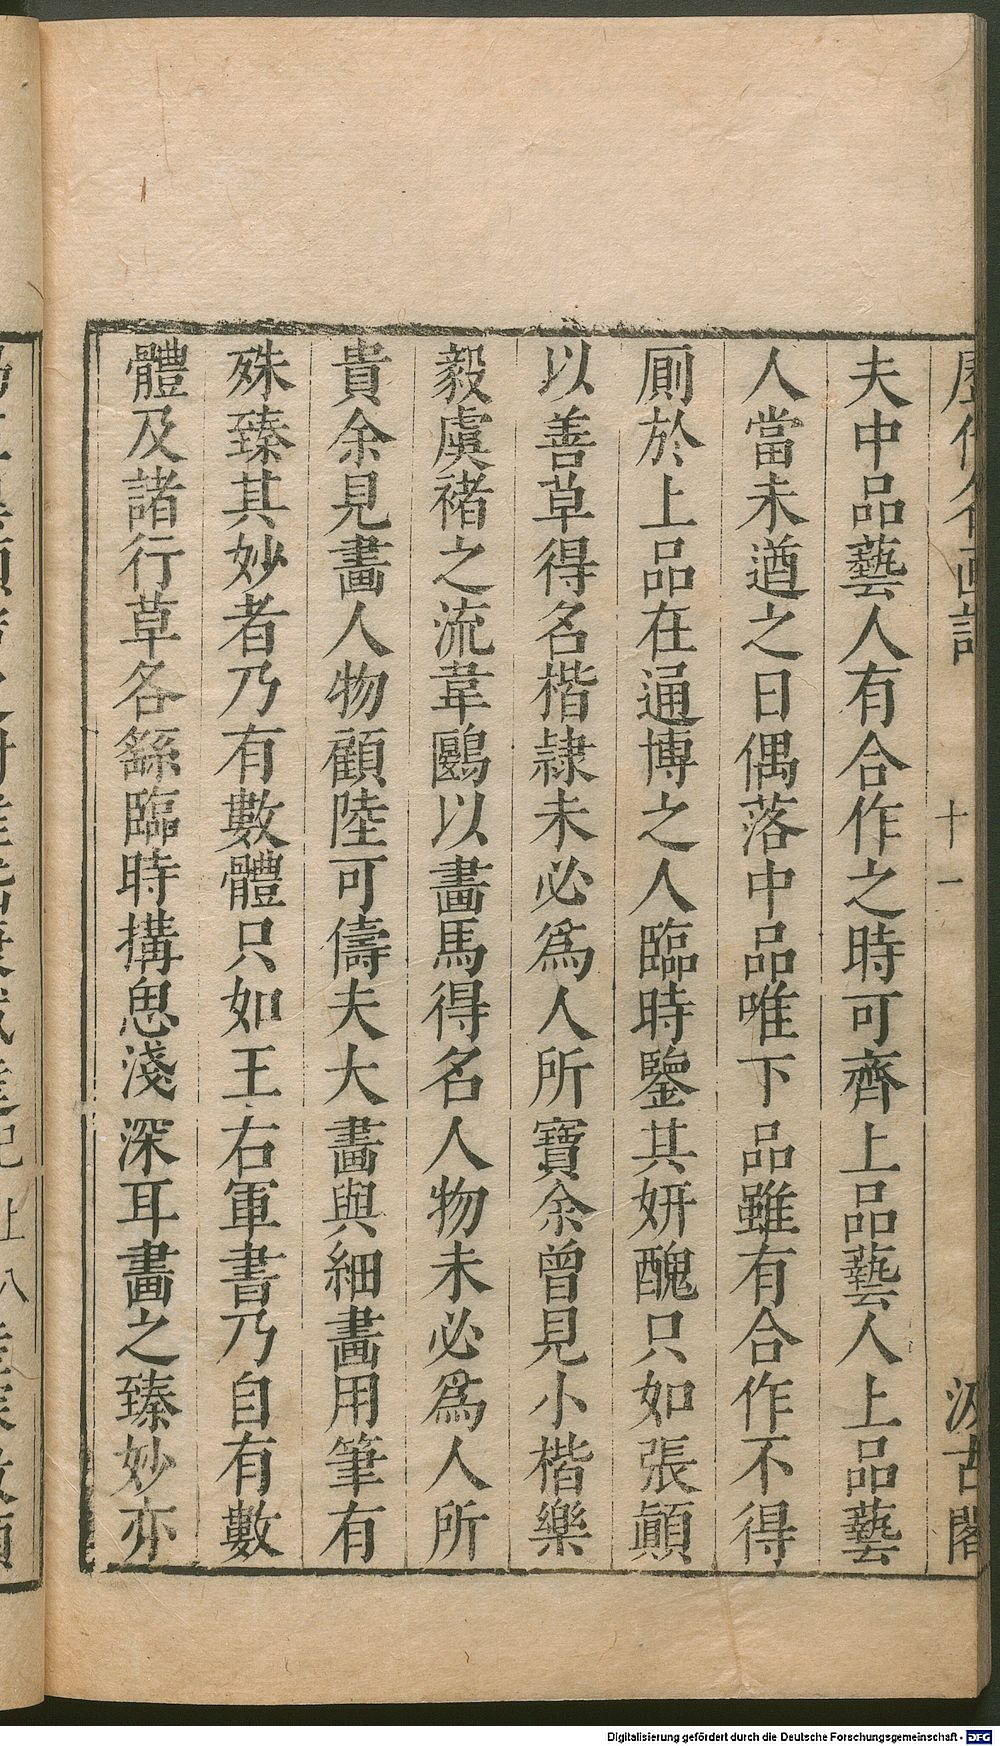 歷代名画記 十一 汲古閣
夫中品藝人有合作之時可齊上品藝人上品藝
人當未遒之日偶落中品唯下品雖有合作不得
厠於上品在通博之人臨時鑒其妍醜只如張顛
以善草得名楷隷未必爲人所寶余曾見小楷樂
毅虞褚之流韋鷗以畫馬得名人物未必爲人所
貴余見畫人物顧陸可儔夫大畫與細畫用筆有
殊臻其妙者乃有數體只如王右軍書乃自有數
體及諸行草各繇臨時搆思淺深耳畫之臻妙亦
Digitalisierung gefördert durch die Deutsche Forschungsgemeinschaft - DFG